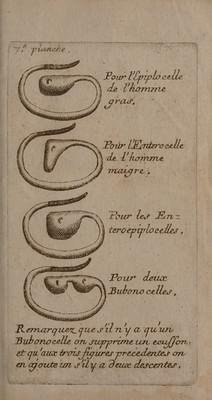 7.e planche.
Pour l'Epiplocelle
de l'homme
gras.
Pour l'Enterocelle
de l'homme
maigre.
Pour les En=
teroepiplocelles.
Pour deux
Bubonocelles.
Remarquez que s'il n'y a qu'un
Bubonocelle on supprime un ecusson,
et qu'aux trois figures precedentes on
en ajoute un s'il y a deux descentes.